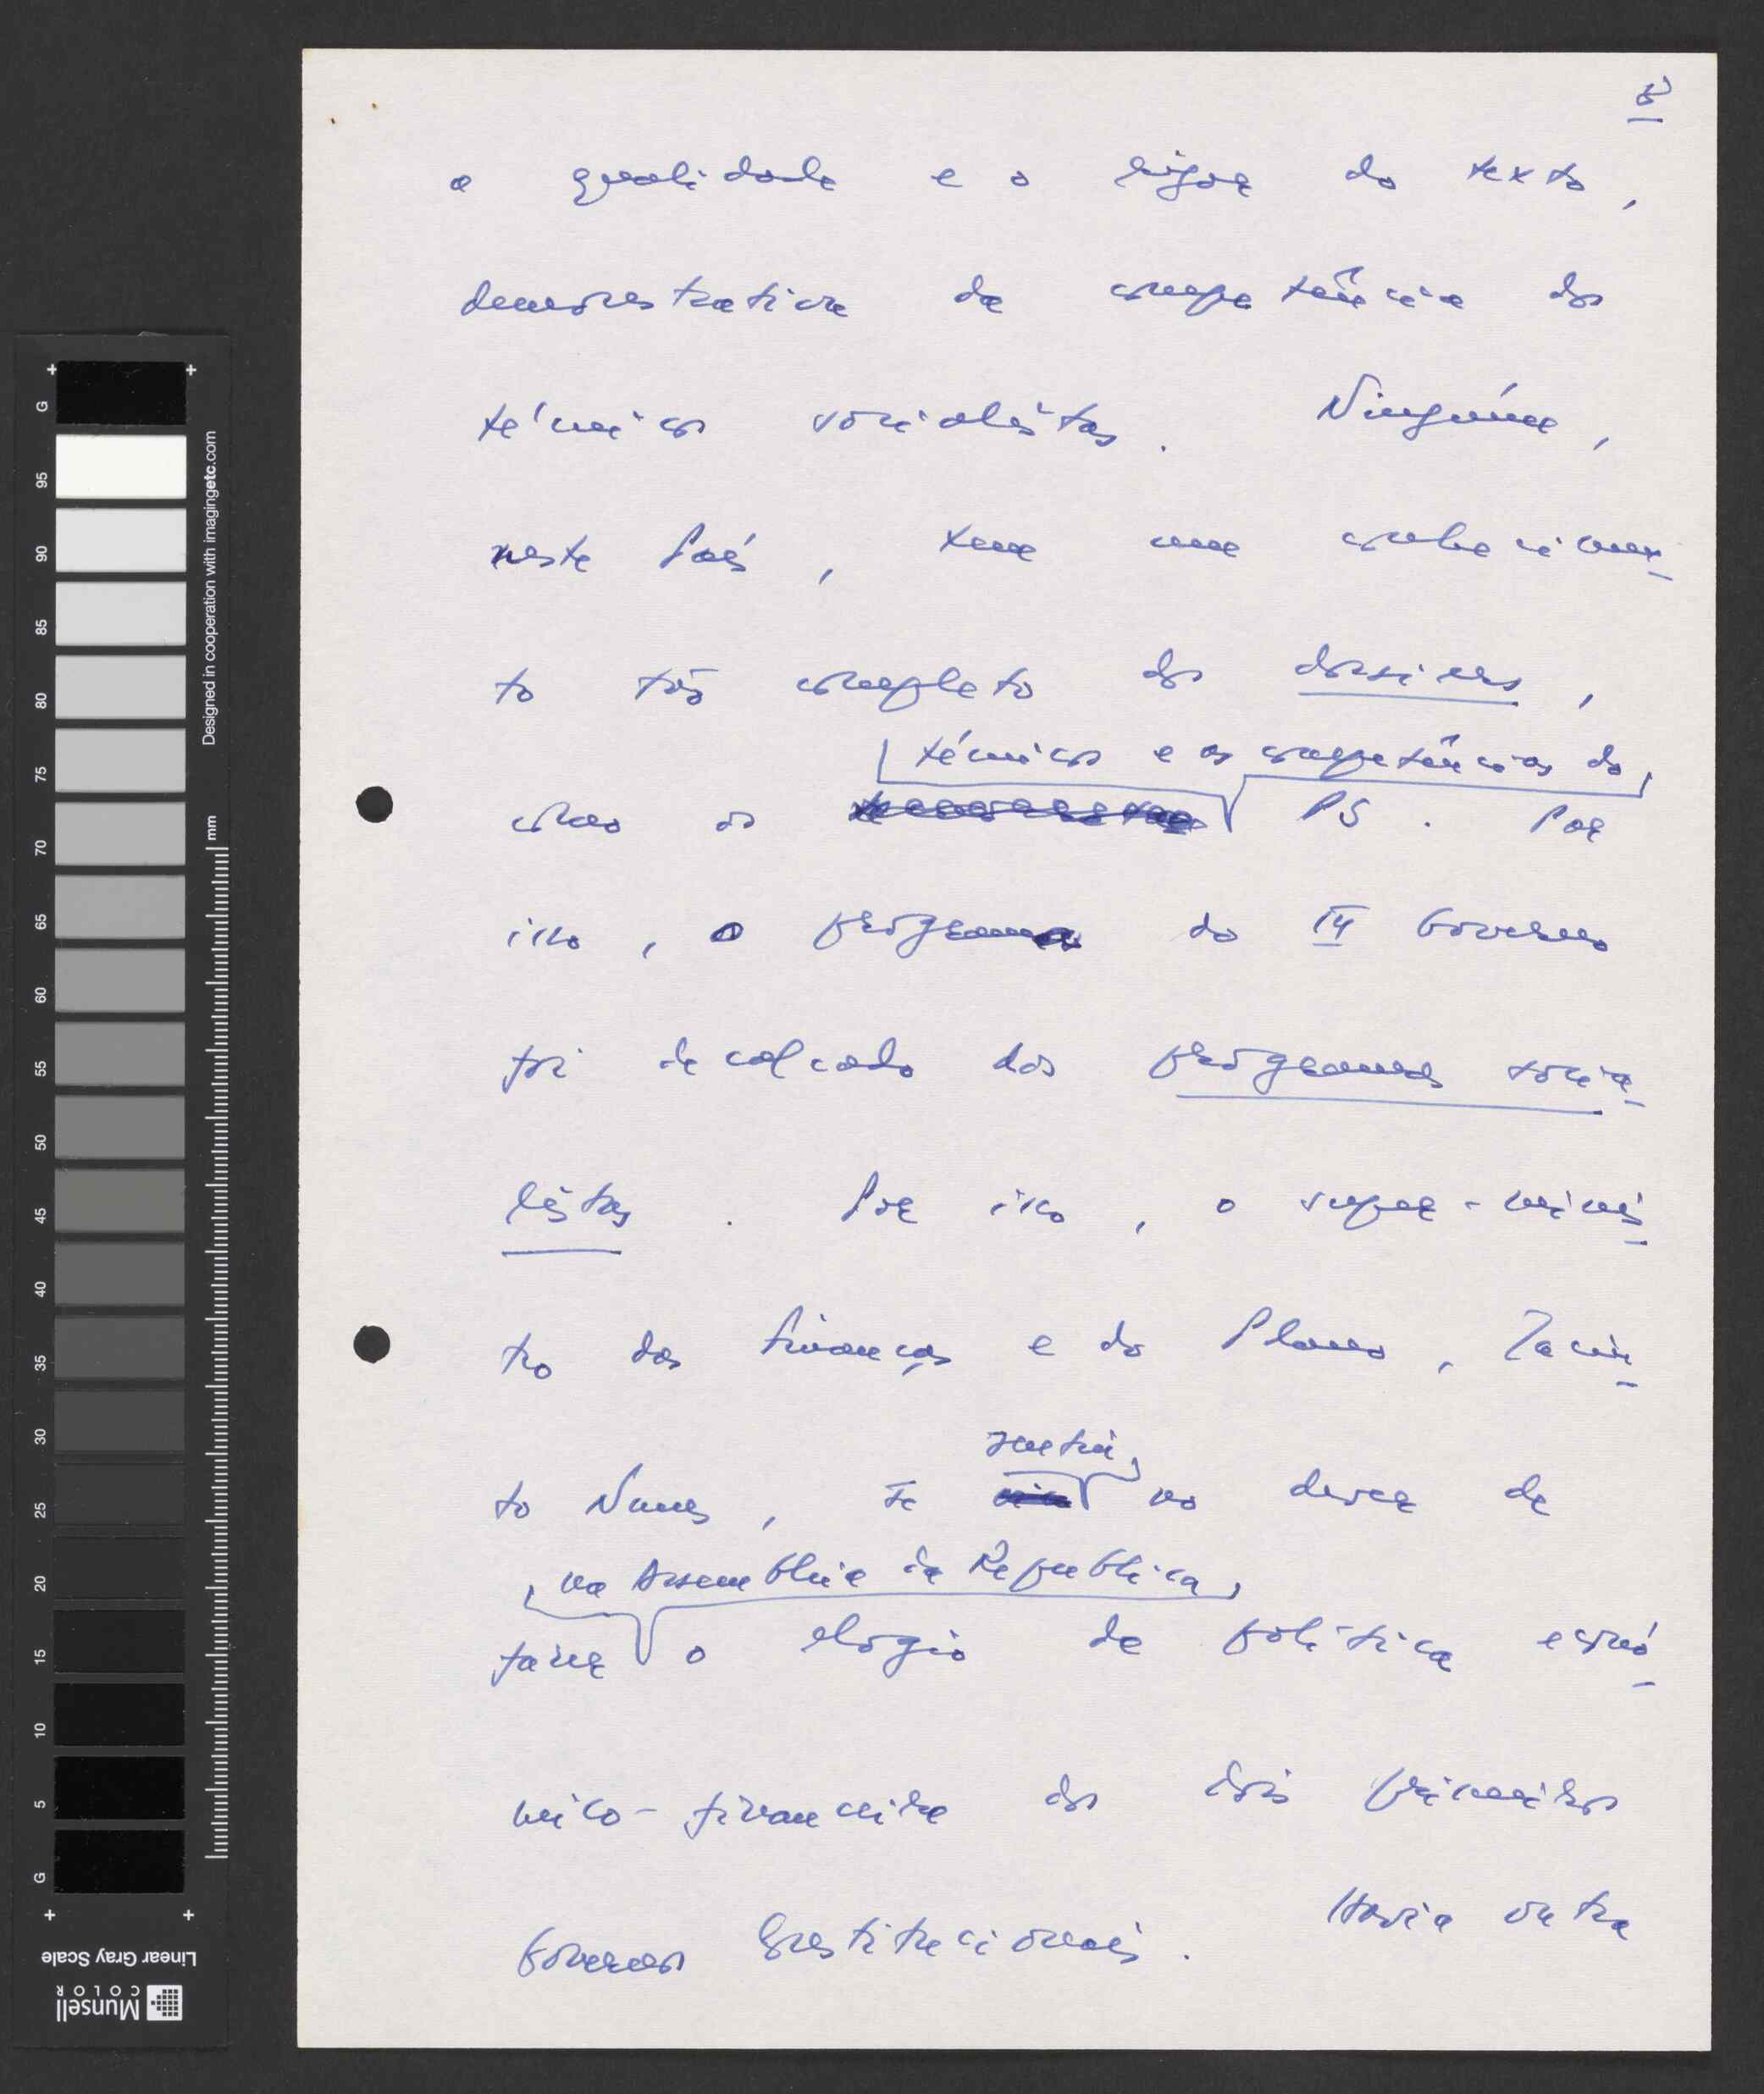 a qualidade e o rigor do texto,
demonstrativa da competência dos
técnicos socialistas. Ninguém,
neste País, tem um conhecimen-
to tão completo dos dossiers,
técnicos e as competências do
como os PS. Por
isso, o programa do IV Governo
foi decalcado dos programas socia-
listas. Por isso, o super-minis-
tro das Finanças e do Plano, Jacin-
sentiu
to Nunes, se no dever de
na Assembleia da República
fazer o elogio da política econó-
mico-financeira dos dois primeiros
Governos Constitucionais. Havia outra
G 95 90 85 80 75 70 65 60 55 50 45 40 35 30 25 20 15 10 5 G
Designed in cooperation with imagingetc.com
mm
Linear Gray Scale
Munsell
COLOR